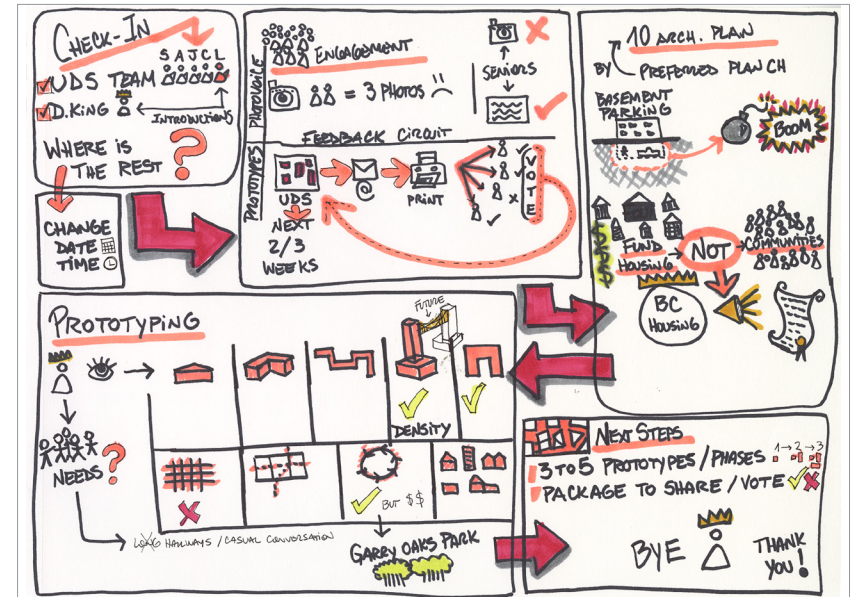 CHECK-IN
S A J C L
UDS TEAM
D. KING
INTRODUCTIONS
WHERE IS
THE REST ?
CHANGE
DATE
TIME
PHOTOVOICE
ENGAGEMENT
= 3 PHOTOS
SENIORS
FEEDBACK CIRCUIT
PROTOTYPES
UDS
@
PRINT
VOTE
NEXT
2/3
WEEKS
10 ARCH. PLAN
BY PREFERRED PLAN CH
BASEMENT
PARKING
BOOM
FUND
HOUSING
NOT
COMMUNITIES
BC
HOUSING
PROTOTYPING
FUTURE
DENSITY
NEEDS ?
BUT $$
LONG HALLWAYS / CASUAL CONVERSATION
GARRY OAKS PARK
NEXT STEPS
1→2→3
3 TO 5 PROTOTYPES / PHASES
PACKAGE TO SHARE / VOTE
BYE
THANK
YOU!